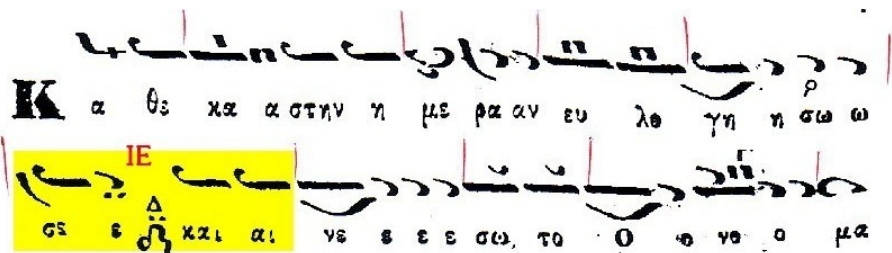 Κ α θε κα α στην η με ρα αν ευ λο γη η σω ω
ΙΕ
σε ε Δ και αι νε ε ε ε σω, το Ο ο νο ο μα